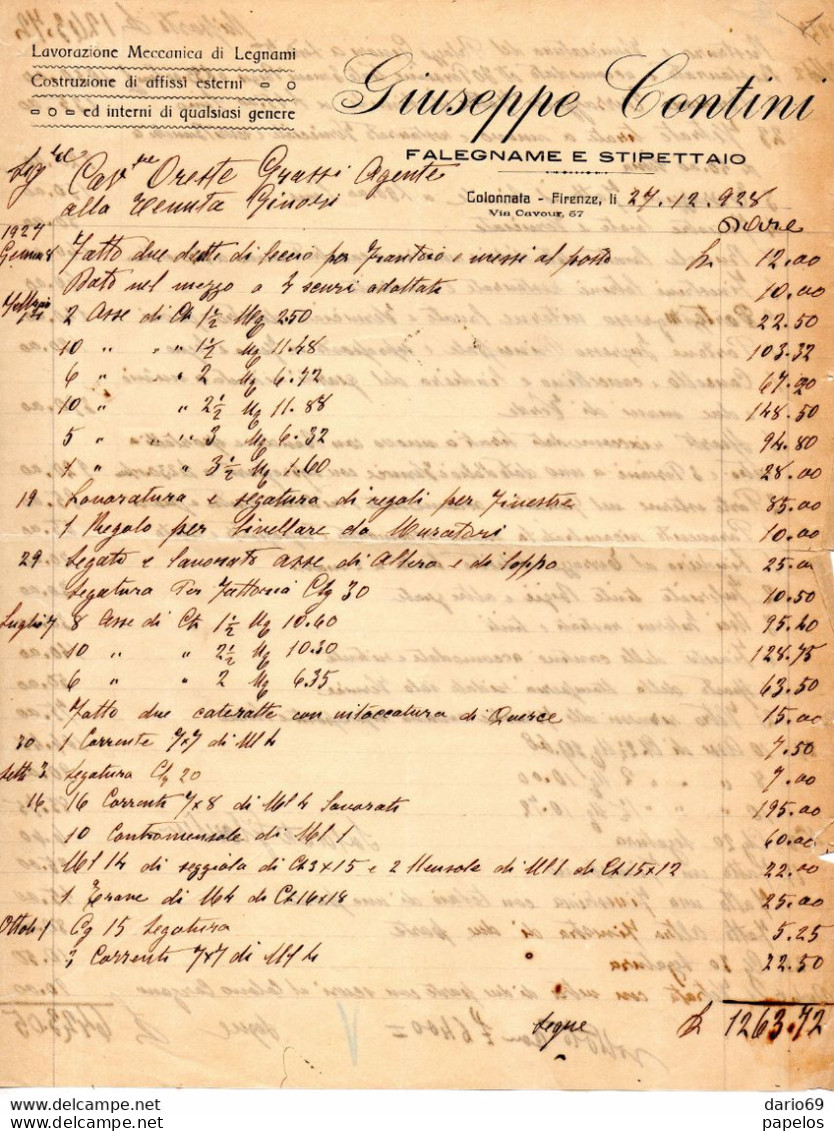 Lavorazione Meccanica di Legnami
Costruzione di affissi esterni
ed interni di qualsiasi genere
Giuseppe Contini
FALEGNAME E STIPETTAIO
Colonnata - Firenze, li 27.12.928
Via Cavour, 57
Cav Oreste Grassi Agente
alla Tenuta Ginori
Dare
1927
8 Fatto due di leccio per Frantoio e messi al posto L 12.00
Dato nel mezzo a scuri adattate 10.00
2 Asse di Ch 1½ Mq 2.50 22.50
10 " " 1½ Mq 11.48 103.32
6 " " 2 Mq 6.72 67.20
10 " " 2½ Mq 11.88 148.50
5 " " 3 Mq 6.32 94.80
1 " " 3½ Mq 1.60 28.00
19 Lavoratura e segatura di regoli per Finestre 85.00
1 Regolo per livellare da Muratori 10.00
29 Segato e lavorato asse di e di 25.00
Segatura Per Fattoria Cg 30 10.50
Luglio 7 8 Asse di Ch 1½ Mq 10.60 95.40
10 " " 2½ Mq 10.30 128.75
6 " 2 Mq 6.35 63.50
Fatto due cateratte con di Querce 15.00
30 1 Corrente 7x7 di Ml 4 7.50
Sett 3 Segatura Cg 20 7.00
16 16 Correnti 7x8 di Ml 4 lavorati 195.00
10 Contromensole di Ml 1 60.00
Ml 14 di seggiola di Ch 3x15 e 2 Mensole di Ml 1 di Ch 15x12 22.00
1 Trave di M 4 di Ch 16x18 25.00
Ottob 1 Cg 15 Segatura 5.25
3 Correnti 7x7 di Ml 4 22.50
segue L 1263.72
dario69
papelos